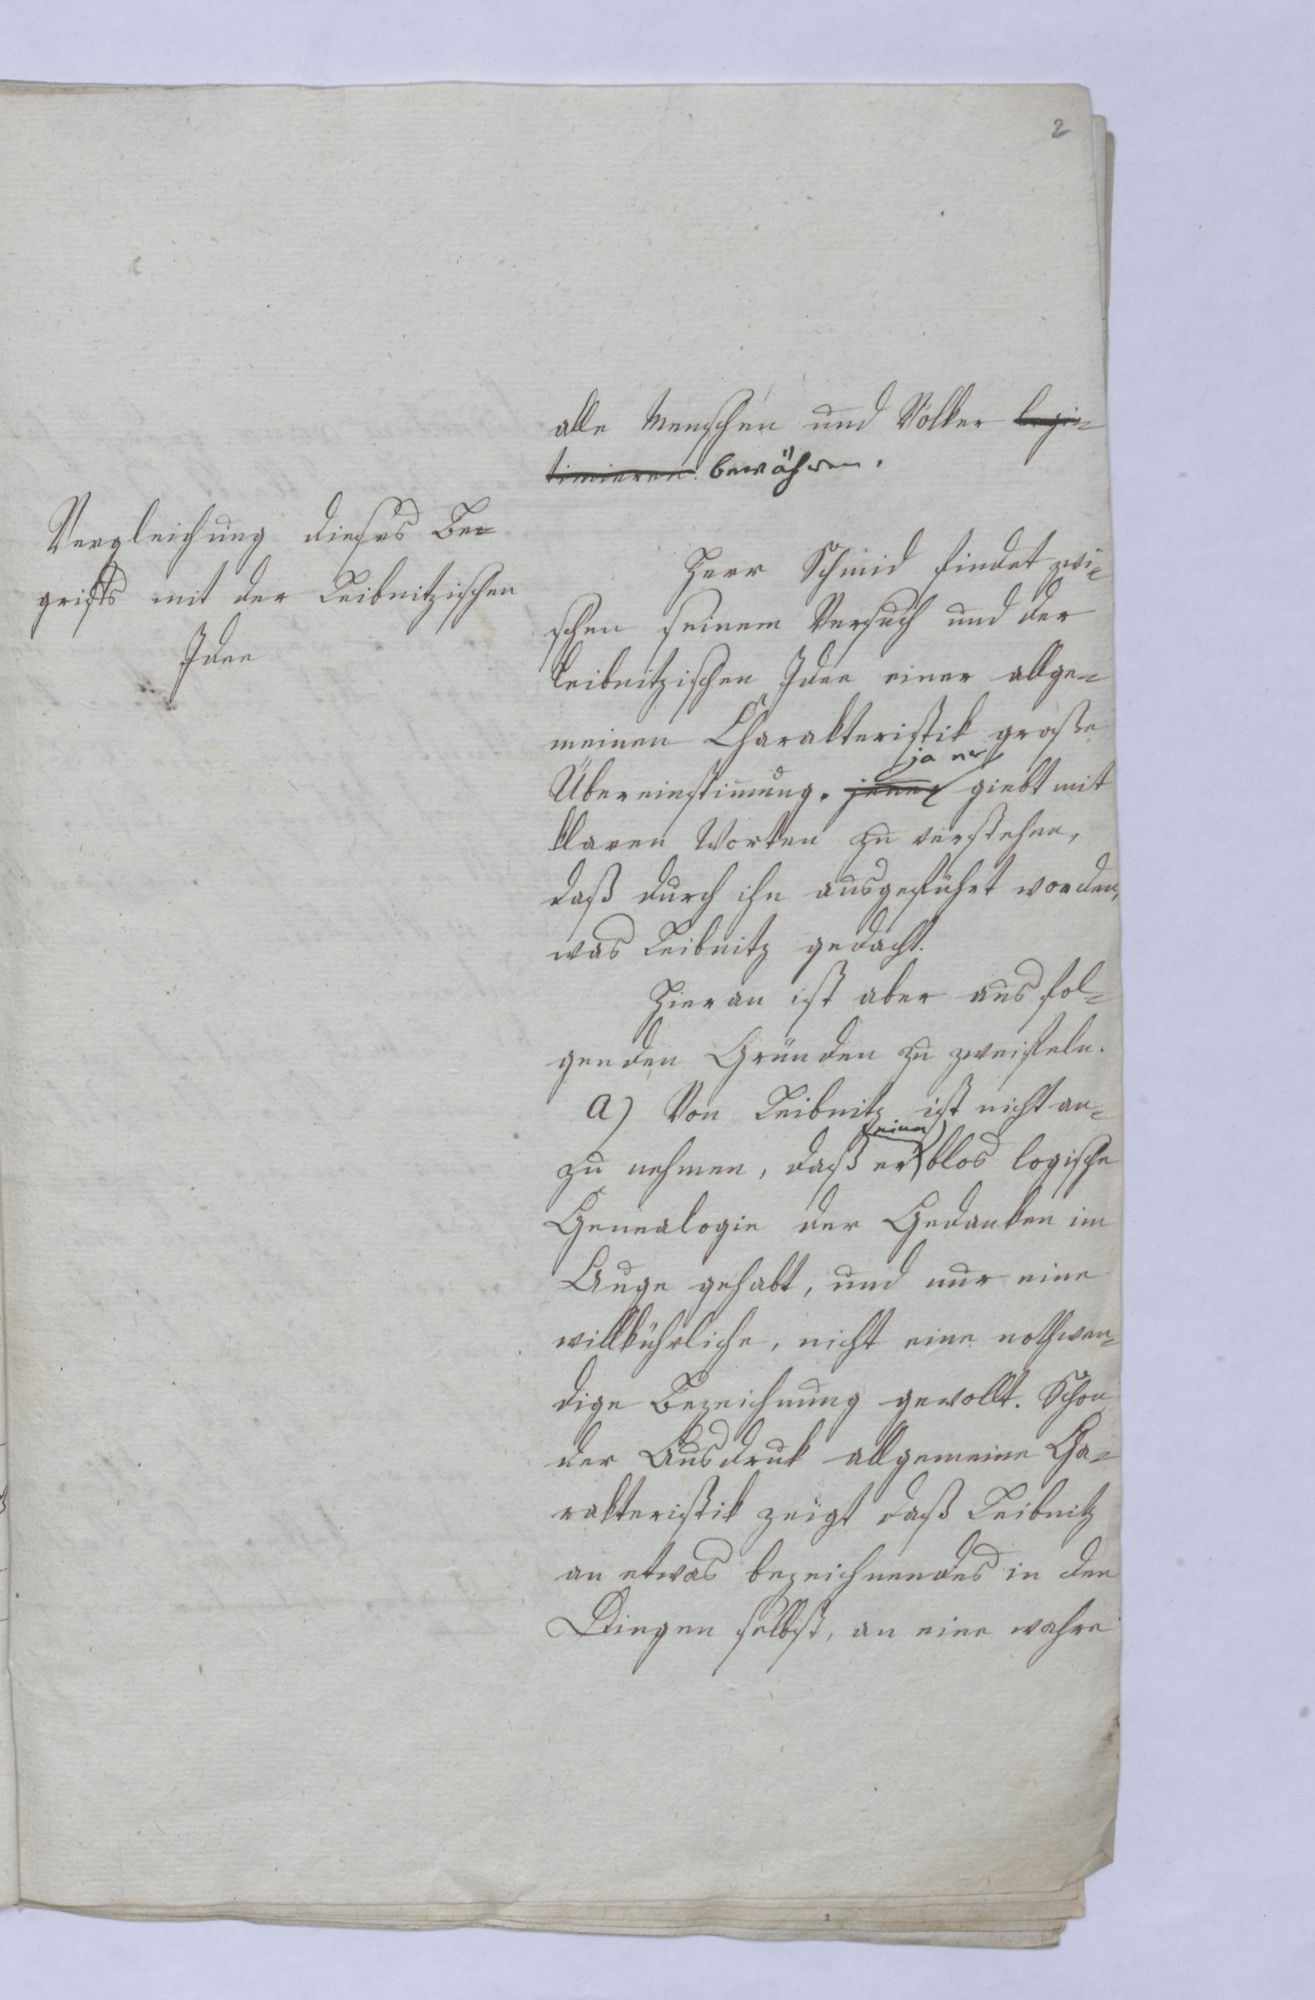 2
alle Menschen und Völker legi-
timieren. bewähren.
Vergleichung dieses Be-
griffs mit der Leibnitzischen
Idee
Herr Schmid findet zwi-
schen seinem Versuch und der
leibnitzischen Idee einer allge-
meinen Charakteristik große
ja er
Übereinstimmung. jener giebt mit
klaren Worten zu verstehen,
daß durch ihn ausgeführt worden,
was Leibnitz gedacht.
Hieran ist aber aus fol-
genden Gründen zu zweifeln.
a) Von Leibnitz ist nicht an-
eine
zu nehmen, daß er blos logische
Genealogie der Gedanken im
Auge gehabt, und nur eine
willkührliche, nicht eine nothwen-
dige Bezeichnung gewollt. Schon
der Ausdruk allgemeine Cha-
rakteristik zeigt daß Leibnitz
an etwas bezeichnendes in den
Dingen selbst, an eine wahre